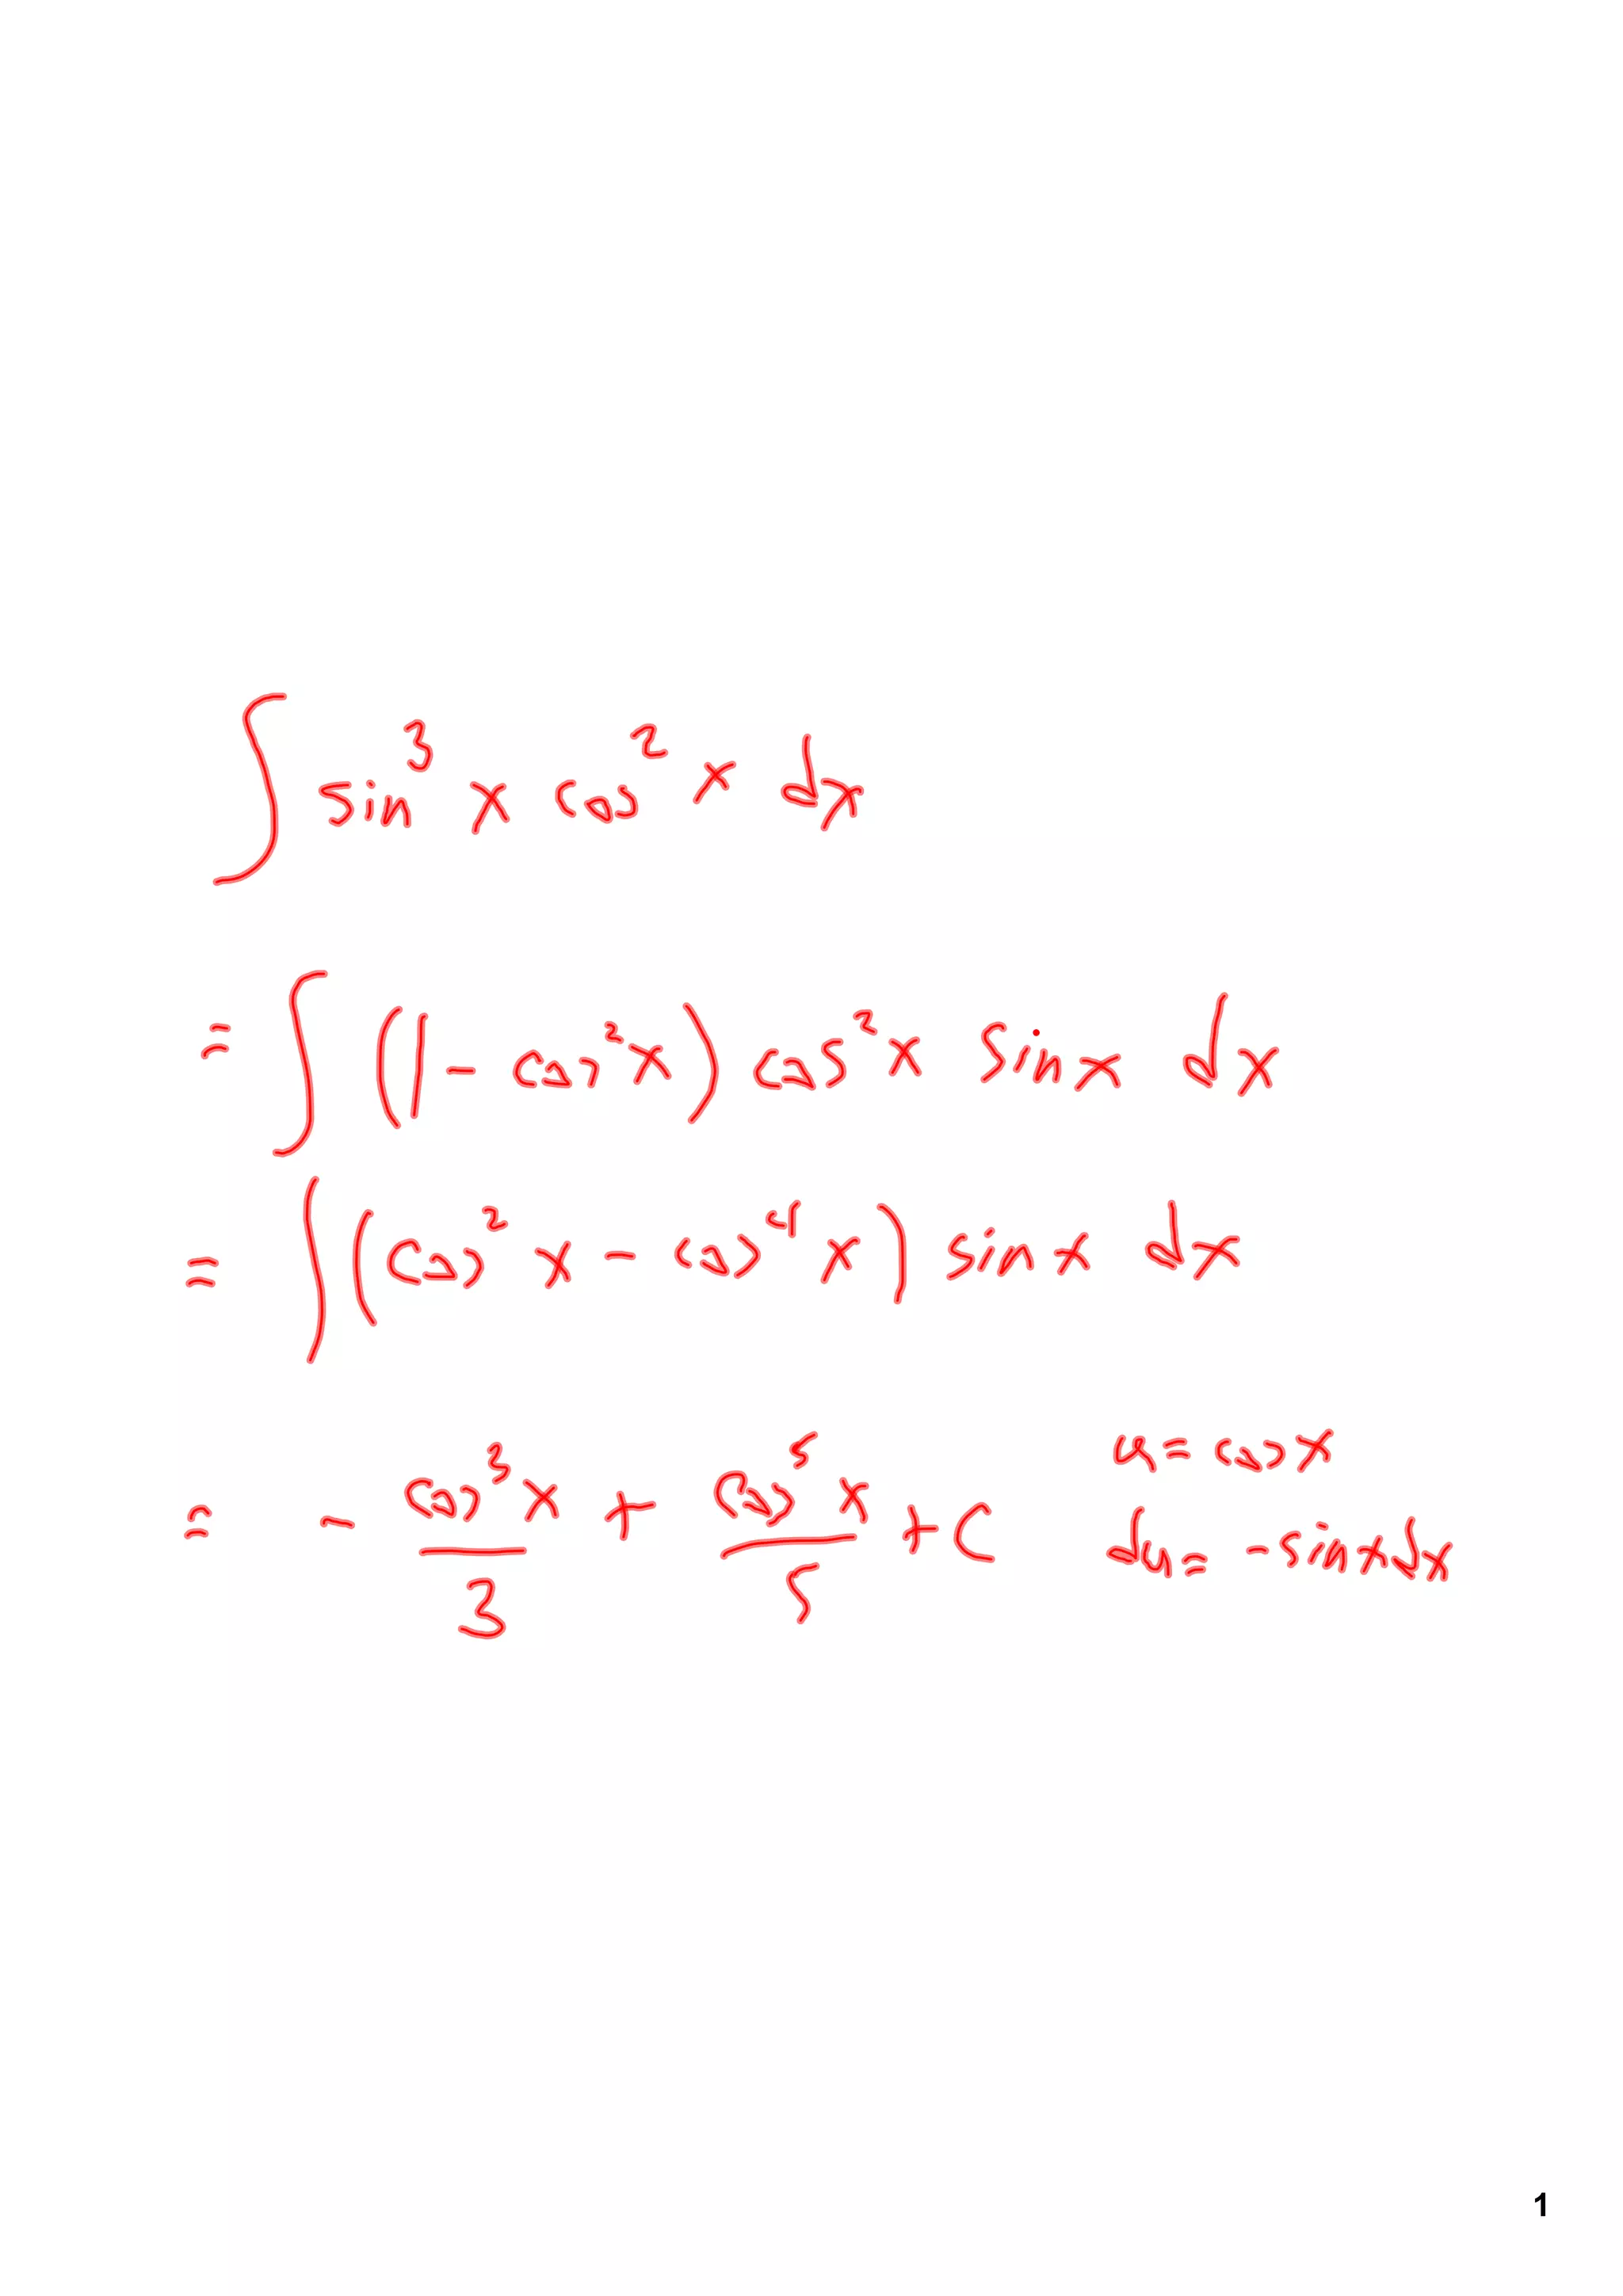 ∫ sin³ x cos² x dx
= ∫ (1 - cos² x) cos² x sin x dx
= ∫ (cos² x - cos⁴ x) sin x dx
= - cos³ x / 3 + cos⁵ x / 5 + C
u = cos x
du = - sin x dx
1